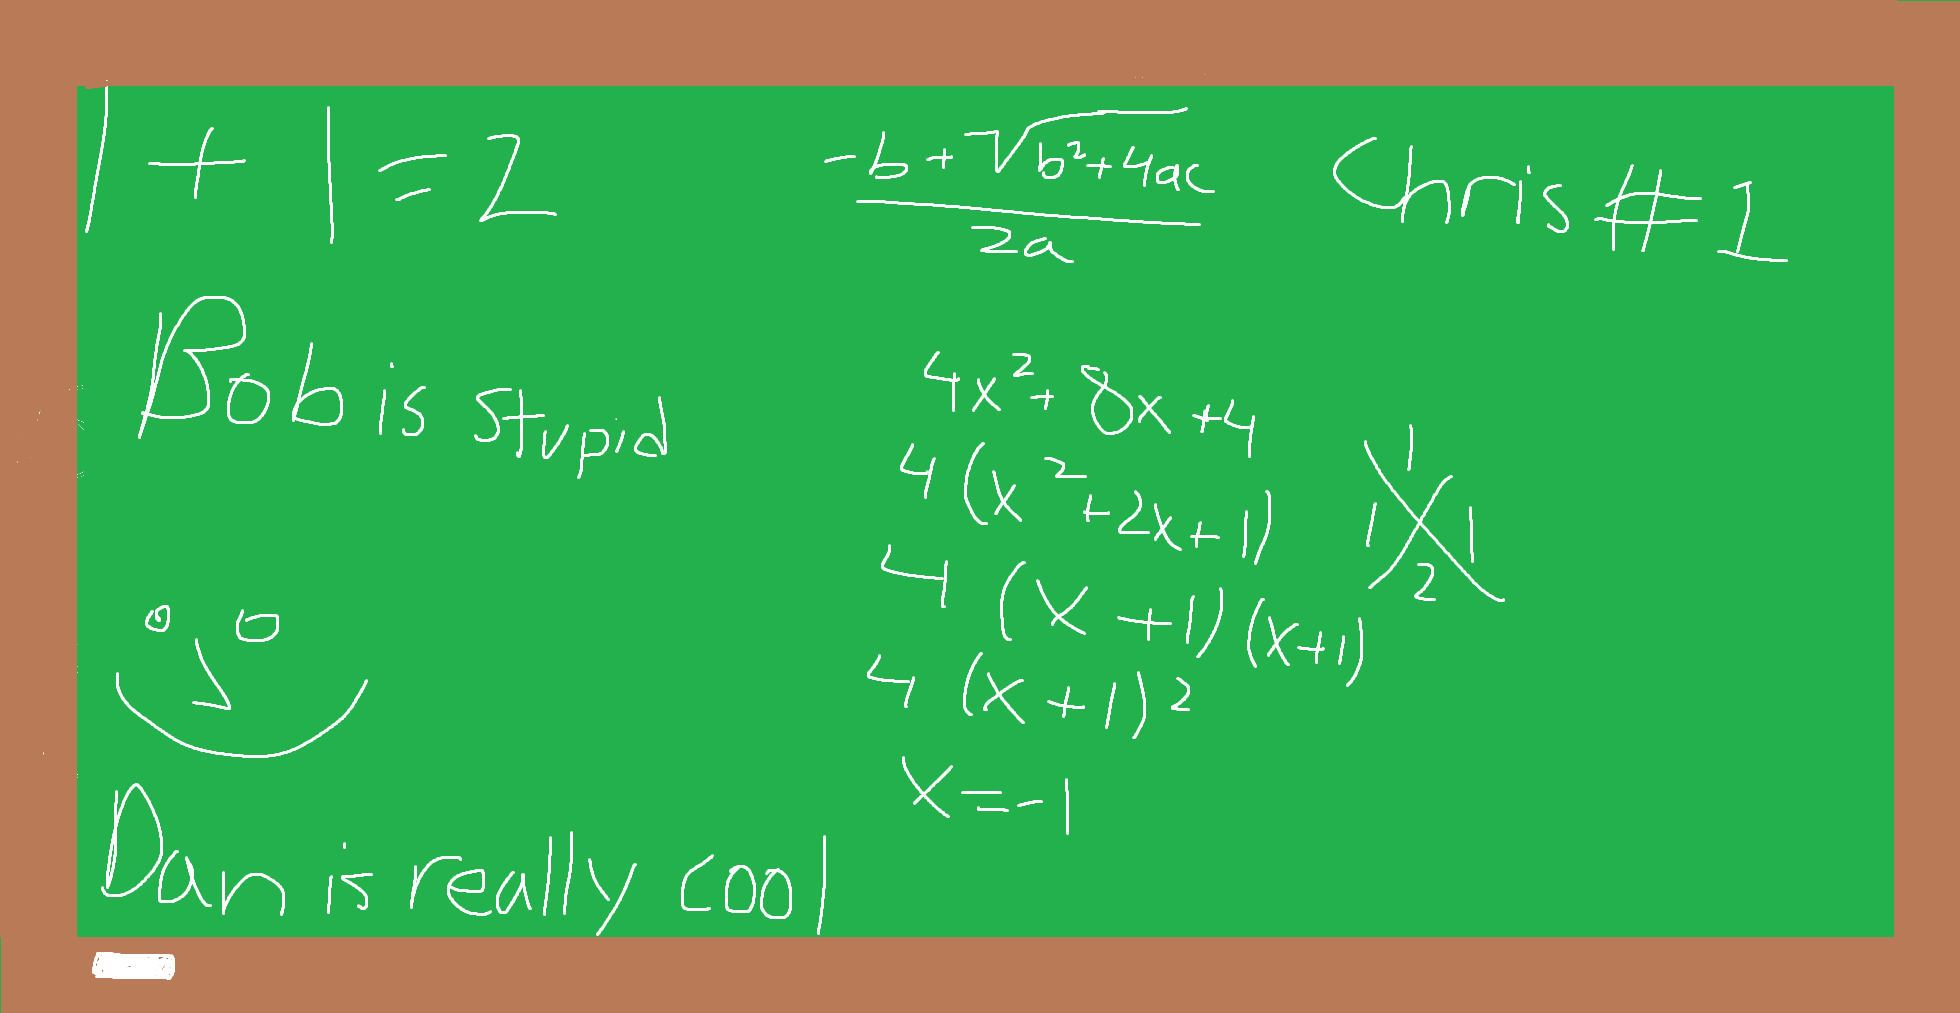 1 + 1 = 2
-b + √b²+4ac
2a
Chris #1
Bob is stupid
4x² + 8x + 4
4(x² + 2x + 1)
1
1 1
2
4(x + 1)(x + 1)
4(x + 1)²
x = -1
Dan is really cool